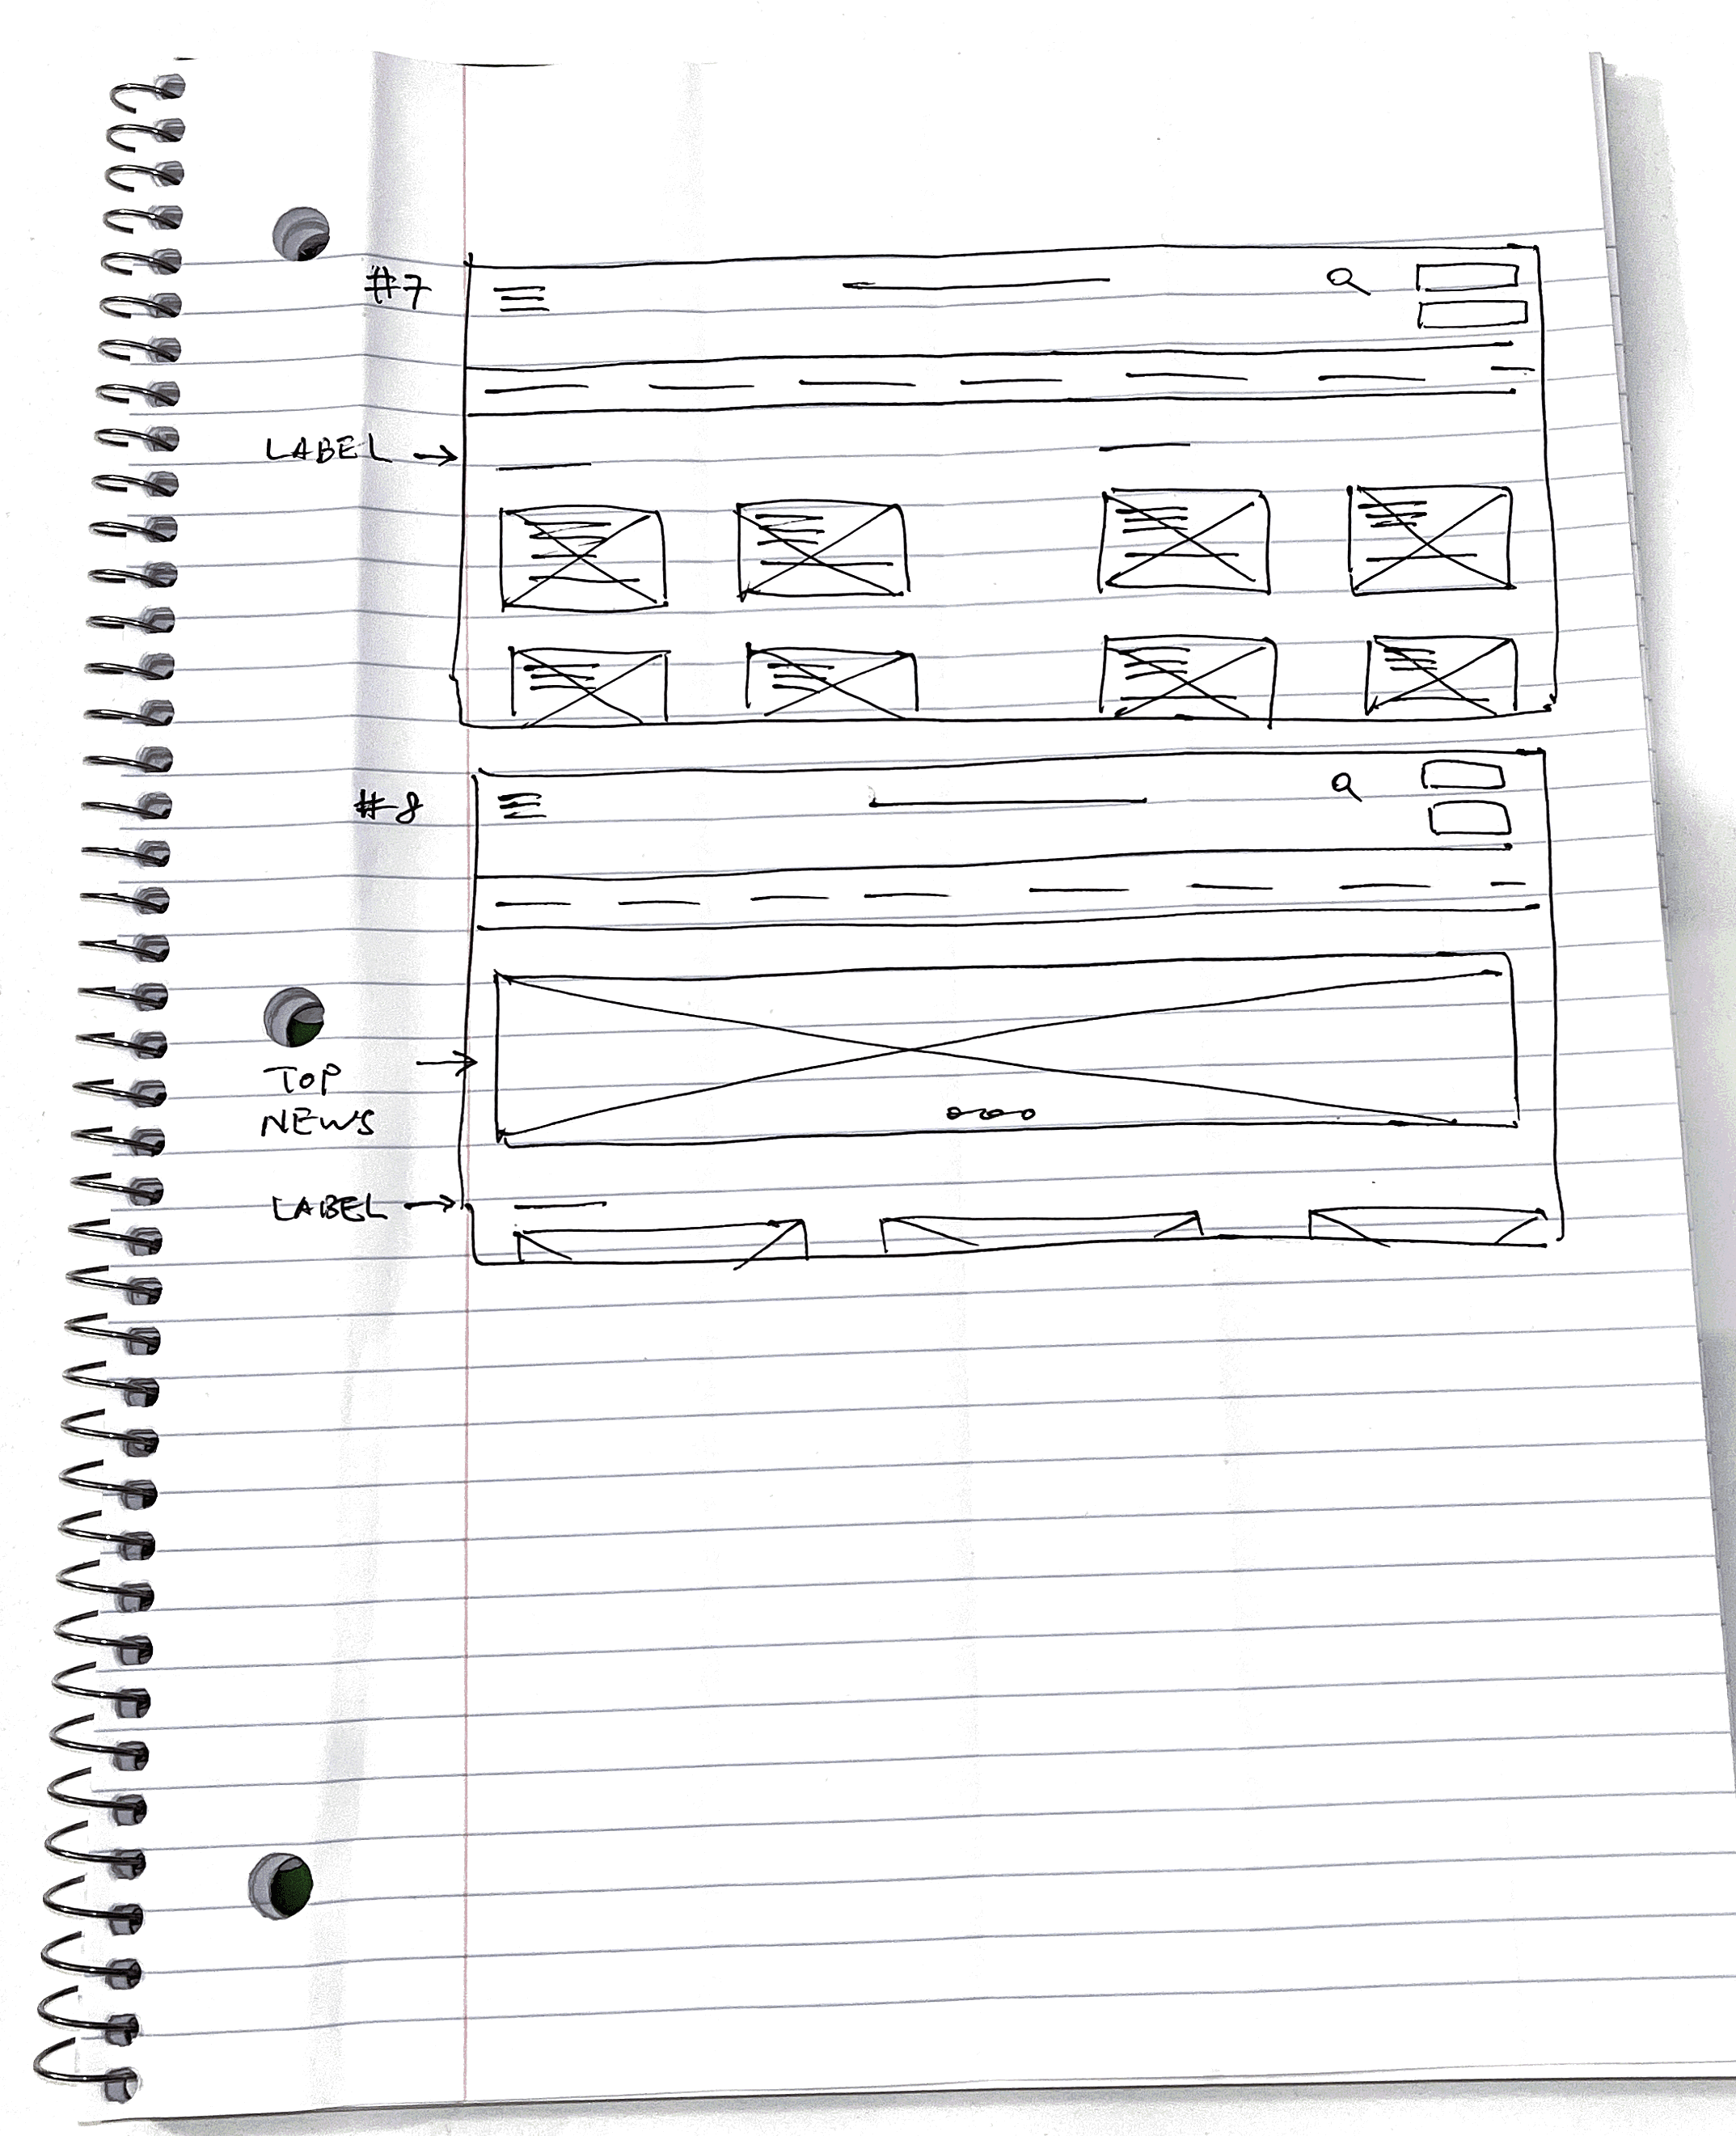 #7
LABEL →
#8
→
TOP
NEWS
LABEL →